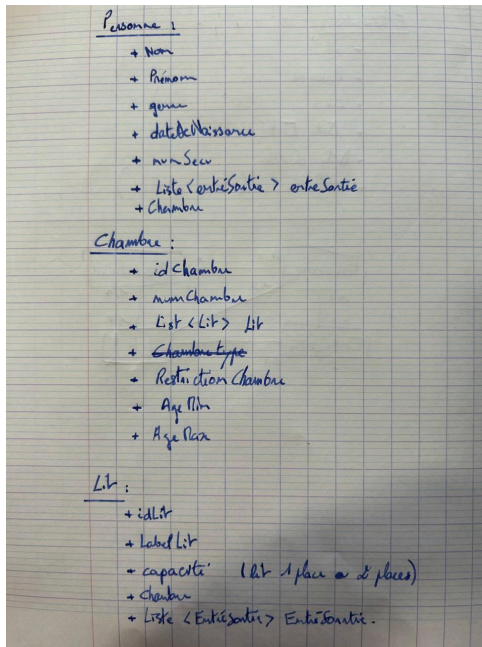 Personne :
+ Nom
+ Prénom
+ genre
+ dateDeNaissance
+ numSecu
+ Liste <entréSortie> entreSortié
+ Chambre
Chambre :
+ idChambre
+ numChambre
+ List <Lit> Lit
+ Chambre type
+ Restriction Chambre
+ Age Min
+ Age Max
Lit :
+ idLit
+ Label Lit
+ capacité (lit 1 place ou 2 places)
+ Chambre
+ Liste <EntréSortie> EntréSortie.